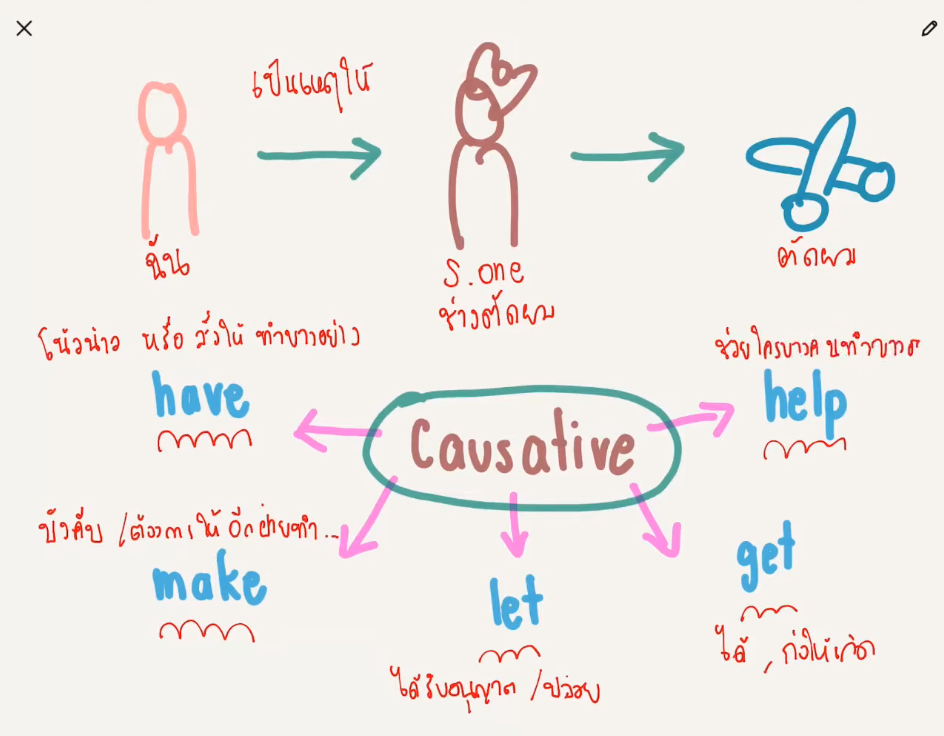 เป็นเหตุให้
ฉัน
S.one
ช่างตัดผม
ตัดผม
โน้วน่าว หรือ สั่งให้ ทำบางอย่าง
have
ช่วยใครบางคนทำบาง
help
Causative
บังคับ /ต้องการให้ อีกฝ่ายทำ...
make
let
ได้รับอนุญาต /ปล่อย
get
ได้ , ก่อให้เกิด